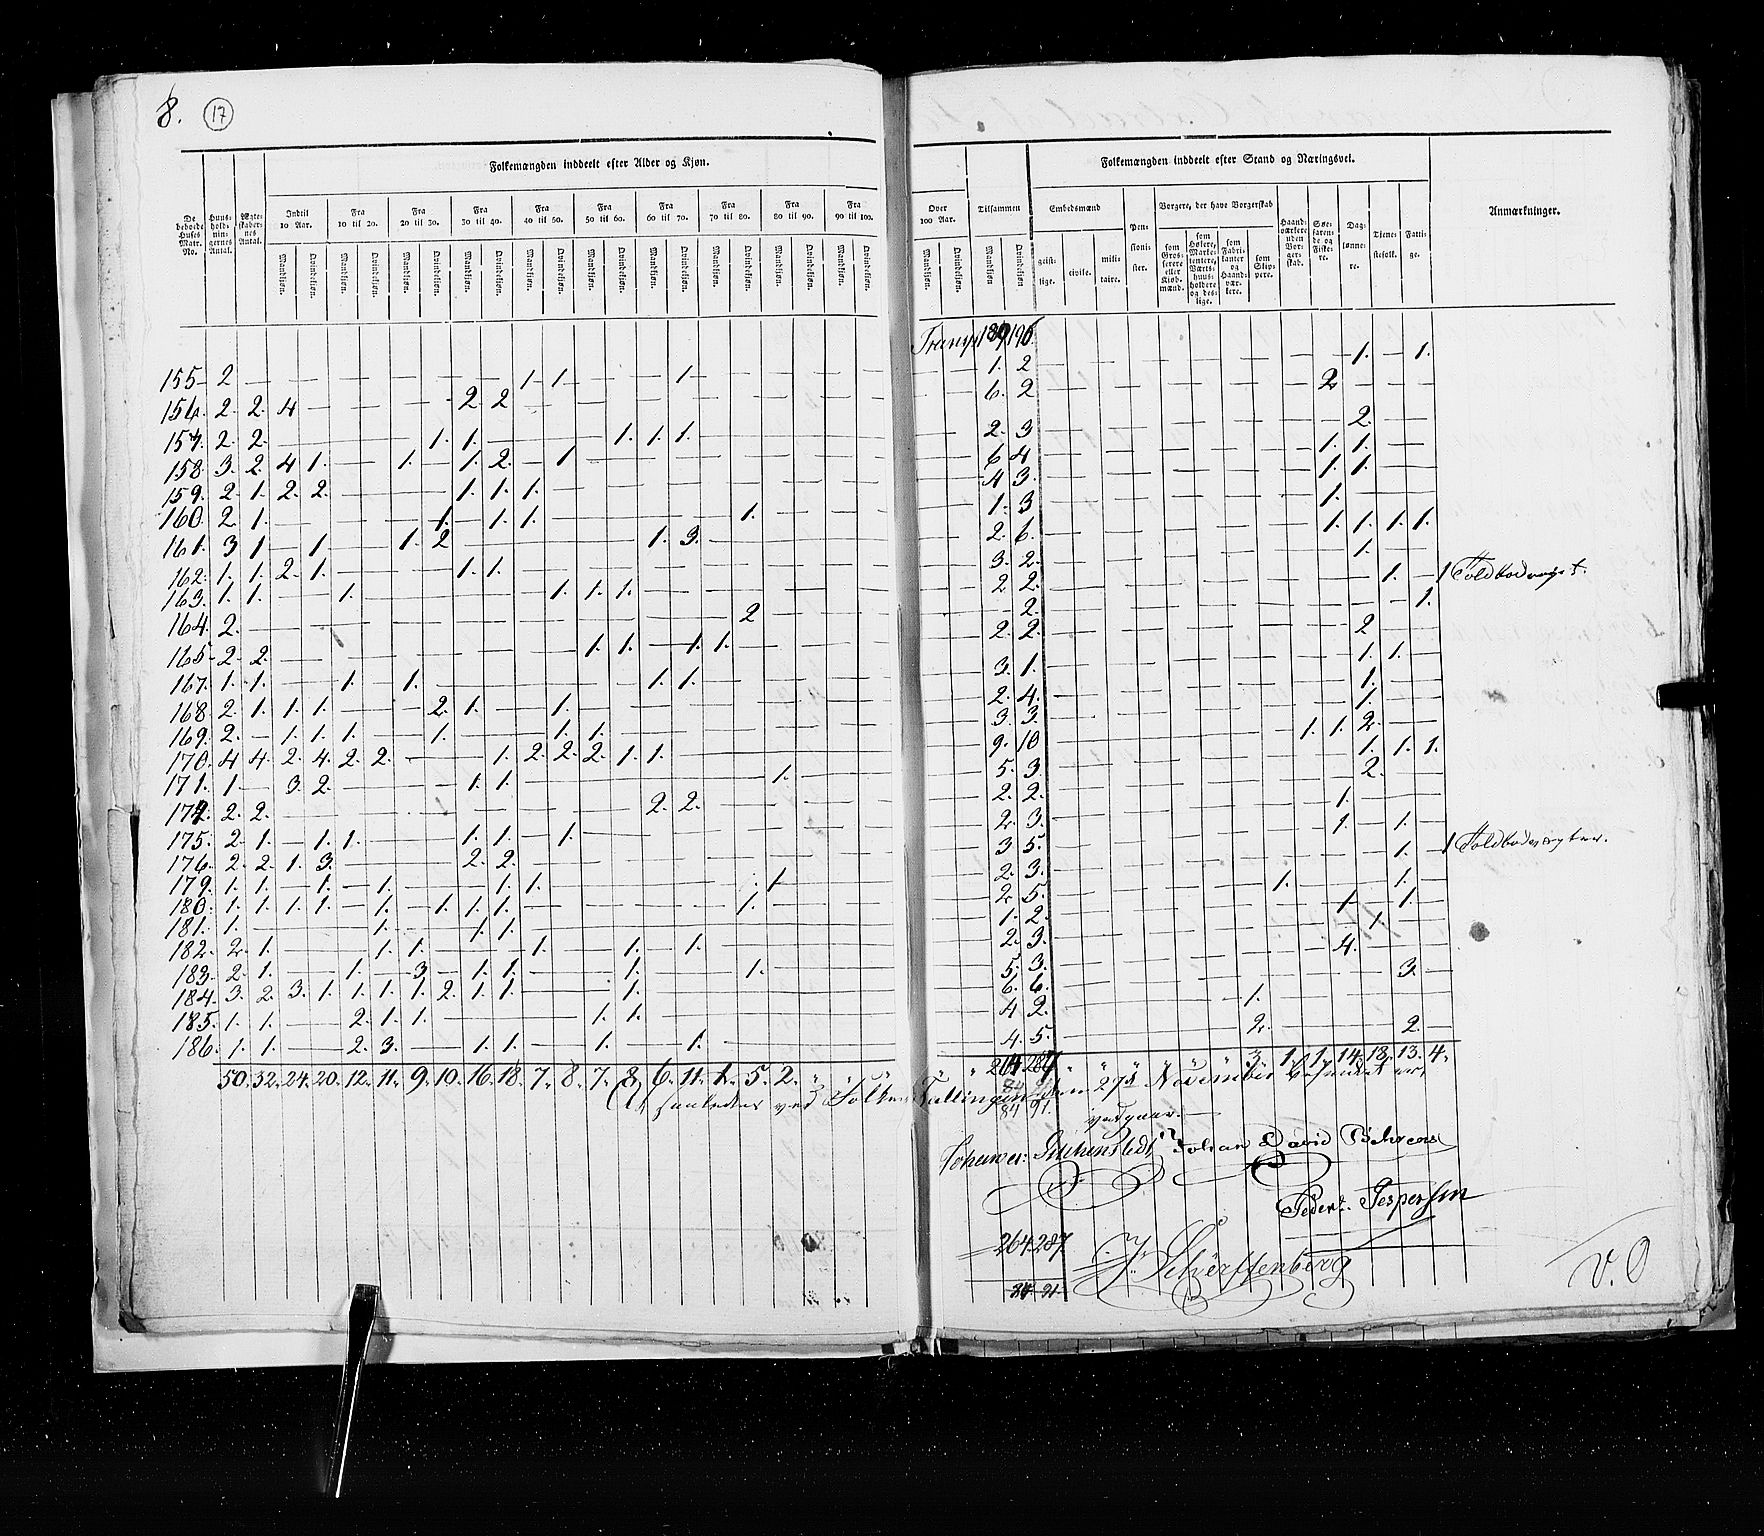 8. 17
Folkemængden inddeelt efter Alder og Kjøn.
Folkemængden inddeelt efter Stand og Næringsvei.
Anmærkninger.
De beboede Huses Matr. No.
Huusholdningernes Antal.
Ægteskabernes Antal.
Indtil 10 Aar.
Fra 10 til 20.
Fra 20 til 30.
Fra 30 til 40.
Fra 40 til 50.
Fra 50 til 60.
Fra 60 til 70.
Fra 70 til 80.
Fra 80 til 90.
Fra 90 til 100.
Over 100 Aar.
Tilsammen
Mandkjøn. Qvindekjøn.
Embedsmænd
geistlige. civile. militaire.
Pensionister.
Borgere, der have Borgerskab
som Grosserere eller Kjøbmænd.
som Høkere, Marketentere, Værtshuusholdere og deslige.
som Fabrikanter og Haandværkere.
som Skippere.
Haandværkere uden Borgerskab.
Søefarende og Fiskere.
Daglønnere.
Tjenestefolk.
Fattige.
Transp 189 196
155 2 — 1 1. 1. 1. 2 1. 1.
156. 2. 2. 4 2. 2 6. 2 2
157. 2. 2. 1. 1. 1. 1. 1. 2. 3 2.
158. 3. 2. 4 1. 1. 1. 2. 1 6 4 1. 1.
159. 2. 1. 2. 2. 1. 1. 1. 4 3. 1. 1.
160. 2. 1. 1. 1. 1. 1. 1. 3 1.
161. 3 1. 1. 1. 2 1. 3. 2. 6. 1. 1. 1. 1.
162. 1. 1. 2. 1. 1. 1. 3. 2. 1.
163. 1. 1. 1. 1. 1. 1. 2 2. 1. 1
164. 2. 2 2. 1.
165 2. 2. 1. 1. 1. 1. 2. 2. 2
167. 1. 1. 1. 1. 1. 1. 3. 1. 1. 1.
168. 2. 1. 1. 1. 2. 1. 1. 2. 4. 1.
169. 2. 1. 1. 1. 1. 1. 1. 3 3. 1.
170. 4 4. 2. 4. 2. 2. 1. 2. 2. 2. 1. 1. 9. 10 1. 1. 2.
171. 1. 3. 2. 1. 1. 1. 5. 3. 1. 1. 1.
2. 2. 2. 2. 2. 2. 2.
175. 2. 1. 1. 1. 1. 1. 1. 2. 3. 1.
176. 2. 2. 1. 3. 2. 2. 3 5. 1. 1.
179. 1. 1. 1. 1. 1. 1. 1. 2. 3. 1. 1
180. 1. 1. 1. 1. 1. 1. 1. 1. 1. 2 5. 1. 1.
181. 1. 1. 1. 1. 1. 2. 1. 1.
182. 2. 1. 1. 1. 1. 1. 1. 2. 3. 1.
183. 2. 1. 1. 3 1. 1. 1. 1. 5. 3. 4.
184. 3. 2. 3. 1. 1. 1. 1. 2. 1. 1. 1. 6. 6. 3.
185. 1. 1. 2. 1. 1. 1. 1. 4 2. 1.
186. 1. 1. 2. 3. 1. 1. 1. 1. 4. 5. 2. 2.
50. 32. 24. 20. 12. 11. 9. 10. 16. 18. 7. 8. 7. 8. 6. 11. 1. 5. 2. " 264 287 " " " " " " 3. 1. 1. 14. 18. 13. 4.
At saaledes ved Folke Tællingen den 27d November befundet er,
84 91.
vedgaar.
Johan David Behrens
Peder Jespersen
264 287
84 91
Schierffenberg
V. O